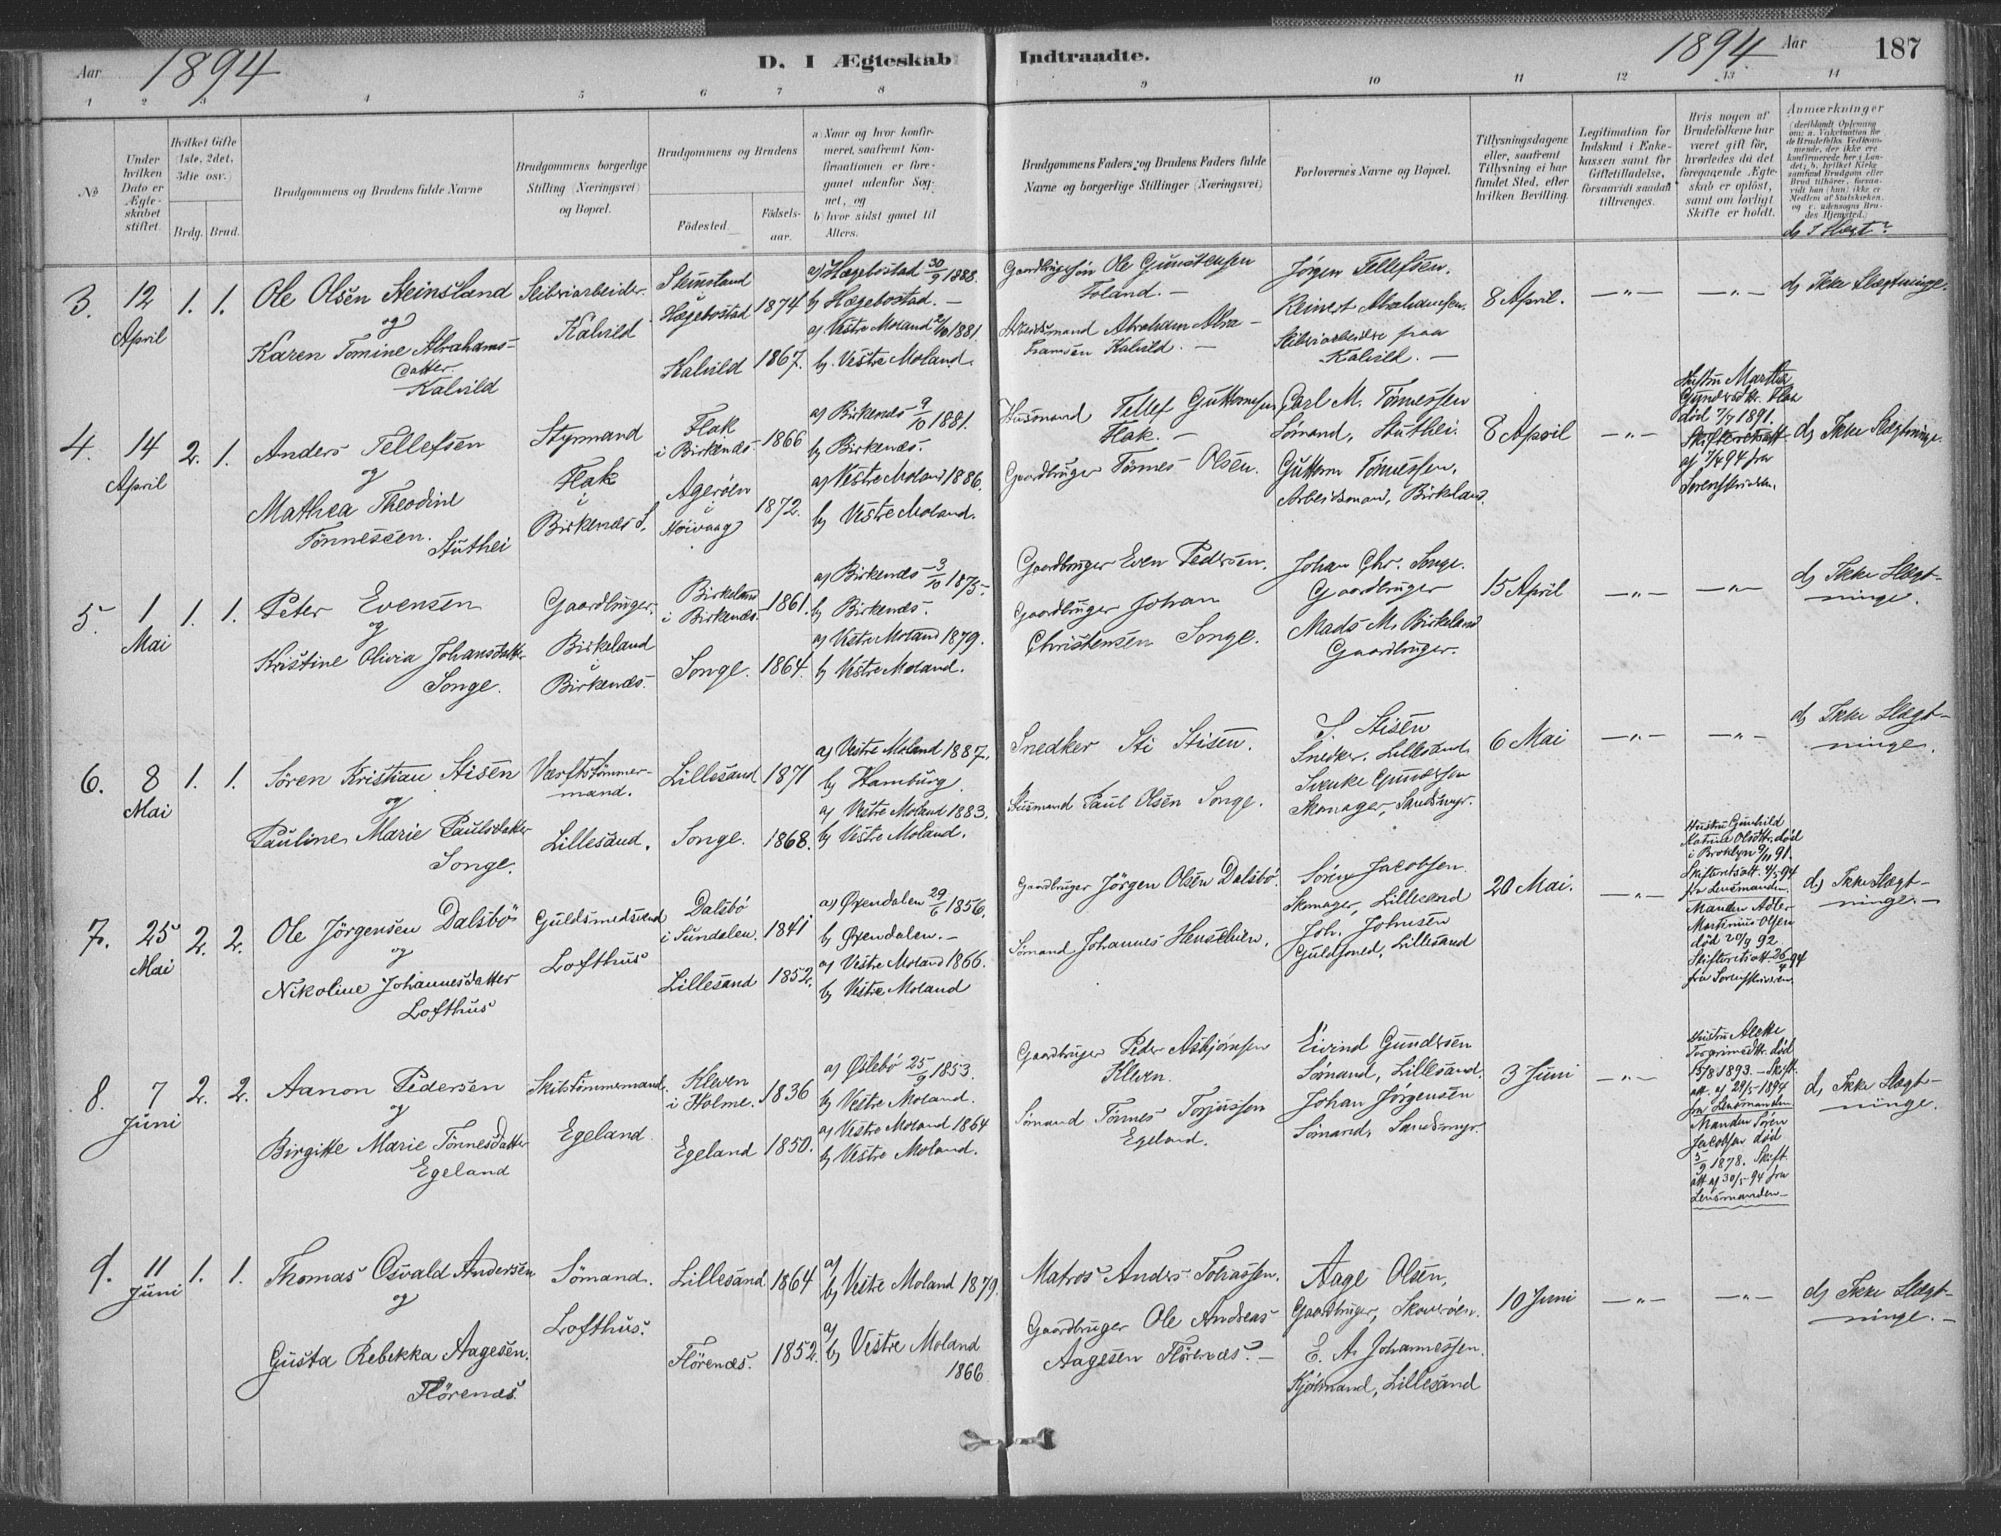 Aar 1894 D. I Ægteskab Indtraadte. 1894 Aar 187
1 2 3 4 5 6 7 8 9 10 11 12 13 14
№
Under hvilken Dato er Ægteskabet stiftet.
Hvilket Gifte (1ste, 2det, 3die osv.)
Brdg. Brud.
Brudgommens og Brudens fulde Navne
Brudgommens borgerlige Stilling (Næringsvei) og Bopæl.
Brudgommens og Brudens
Födested. Födselsaar.
a) Naar og hvor konfirmeret, saafremt Konfirmationen er foregaaet udenfor Sognet, og
b) hvor sidst gaaet til Alters.
Brudgommens Faders og Brudens Faders fulde Navne og borgerlige Stillinger (Næringsvei)
Forlovernes Navne og Bopæl.
Tillysningsdagene eller, saafremt Tillysning ei har fundet Sted, efter hvilken Bevilling.
Legitimation for Indskud i Enkekassen samt for Giftetilladelse, forsaavidt saadan tiltrænges.
Hvis nogen af Brudefolkene har været gift før, hvorledes da det foregaaende Ægteskab er opløst, samt om lovligt Skifte er holdt.
Anmærkninger
3. 12 April 1. 1.
Ole Olsen Steinsland
og
Karen Tomine Abrahamsdatter
Kalvild
Kalvild
Hægebostad 1874
Kalvild 1867.
a) Hægebostad 30/9 1888.
b) Hægebostad. —
a) Vestre Moland 2/10 1881.
b. Vestre Moland.
Ole Gunstensen
Foland. —
Abraham Abrahamsen Kalvild. —
Jørgen Tellefsen.
Reinert Abrahamsen.
Skibsarbeidere paa
Kalvild. —
8 April. —„— —„— d) Ikke Slægtninge.
4. 14 April 2. 1.
Anders Tellefsen
og
Mathea Theodine
Tönnessen. Stuthei
Styrmand
Flak
i
Birkenæs S.
Flak
i Birkenæs 1866
Agerøen
i
Höivaag 1872.
a) Birkenæs 9/10 1881.
b) Birkenæs.
a) Vestre Moland 1886.
b) Vestre Moland.
Husmand Tellef Guttormsen
Flak. —
Gaardbruger Tönnes Olsen.
Carl M. Tönnessen
Sömand, Stuthei.
Guttorm Tönnessen,
Arbeidsmand, Birkeland.
8 April —„—
Hustru Martha
død 7/7 1891.
Skifteretsatt.
af 7/4 94 fra
Sorenskriveren.
d) Ikke Slægtninge.
5. 1 Mai 1. 1.
Peter Evensen
og
Kristine Olivia Johansdatter
Songe.
Gaardbruger.
Birkeland
i
Birkenæs.
Birkeland
i Birkenæs. 1861.
Songe. 1864.
a) Birkenæs 3/10 1875.
b) Birkenæs.
a) Vestre Moland 1879.
b) Vestre Moland.
Gaardbruger Even Pedersen.
Gaardbruger Johan
Christensen Songe.
Johan Chr. Songe.
Gaardbruger
Mads M. Birkeland
Gaardbruger.
15 April —„— —„— d) Ikke Slægtninge.
6. 8 Mai 1. 1.
Sören Kristian Stisen
og
Pauline Marie Paulsdatter
Songe.
Værftstömmermand.
Lillesand.
Lillesand 1871
Songe. 1868.
a) Vestre Moland 1887.
b) Hamburg.
a) Vestre Moland 1883.
b) Vestre Moland.
Snedker Sti Stisen.
Husmand Paul Olsen Songe.
S. Stisen
Snedker. Lillesand.
Svenke Gundersen
Skomager, Sandsmyr.
6 Mai —„— —„— d) Ikke Slægtninge.
7. 25 Mai 2. 2.
Ole Jörgensen Dalsbö
og
Nikoline Johannesdatter
Lofthus
Guldsmedsvend
Lofthus
Dalsbö
i Sundalen. 1841
Lillesand 1852.
a) Øxendalen 29/6 1856.
b) Øxendalen. —
a) Vestre Moland 1866.
b) Vestre Moland
Gaardbruger Jörgen Olsen Dalsbö.
Sömand Johannes
Sören Jacobsen
Skomager, Lillesand
Joh. Johnsen
Guldsmed, Lillesand
20 Mai. —„—
Hustru Gunhild
Katrine Olsdtr. død
i Broklyn 9/11 91.
Skifteretsatt. 4/5 94
fra Lensmanden.
Manden Adler
Martinius Olsen
død 20/9 92
Skifteretsatt. 26/4 94
fra Sorenskriveren.
d) Ikke Slægtninge. —
8. 7 Juni 2. 2.
Aanon Pedersen
og
Birgitte Marie Tönnesdatter
Egeland
Skibstömmermand
Egeland.
Kleven
i Holme. 1836
Egeland 1850.
a) Øslebö 25/9 1853.
b) Vestre Moland.
a) Vestre Moland 1864
b) Vestre Moland.
Gaardbruger Peder Asbjörnsen
Kleven.
Sömand Tönnes Torjussen
Egeland.
Eivind Gundersen
Sömand, Lillesand.
Johan Jörgensen
Sömand, Sandsmyr.
3 Juni —„—
Hustru
død
15/8 1893. — Skift.
att. af 29/5 1894
fra Lensmanden
Manden Sören
Jacobsen död
5/9 1878. Skift.
att. af 30/5 94 fra
Lensmanden —
d) Ikke Slægtninge.
9. 11 Juni 1. 1.
Thomas Osvald Andersen
og
Gusta Rebekka Aagesen.
Flörenæs.
Sömand.
Lofthus.
Lillesand 1864
Flörenæs. 1852.
a)
b) Vestre Moland 1879.
a)
b) Vestre Moland
1866
Matros Anders Tobiassen.
Gaardbruger Ole Andreas
Aagesen Flörenæs. —
Aage Olsen,
Gaardbruger,
E. A. Johannessen.
Kjöbmand, Lillesand
10 Juni —„— —„— d) Ikke Slægtninge. —